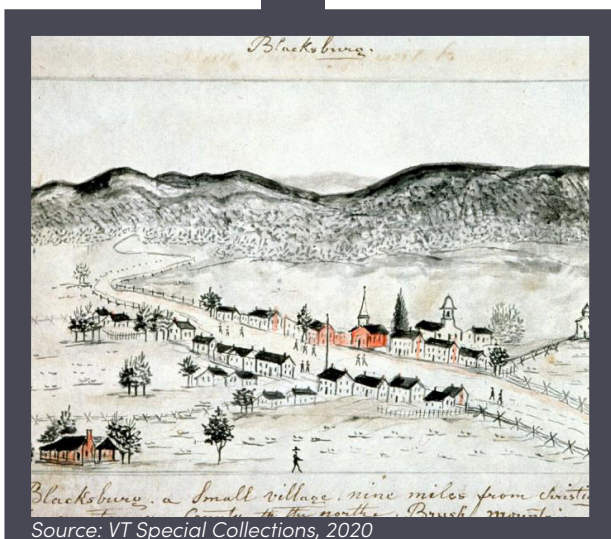 Blacksburg.
Blacksburg. a Small village, nine miles from
County to the north, Brush
Source: VT Special Collections, 2020